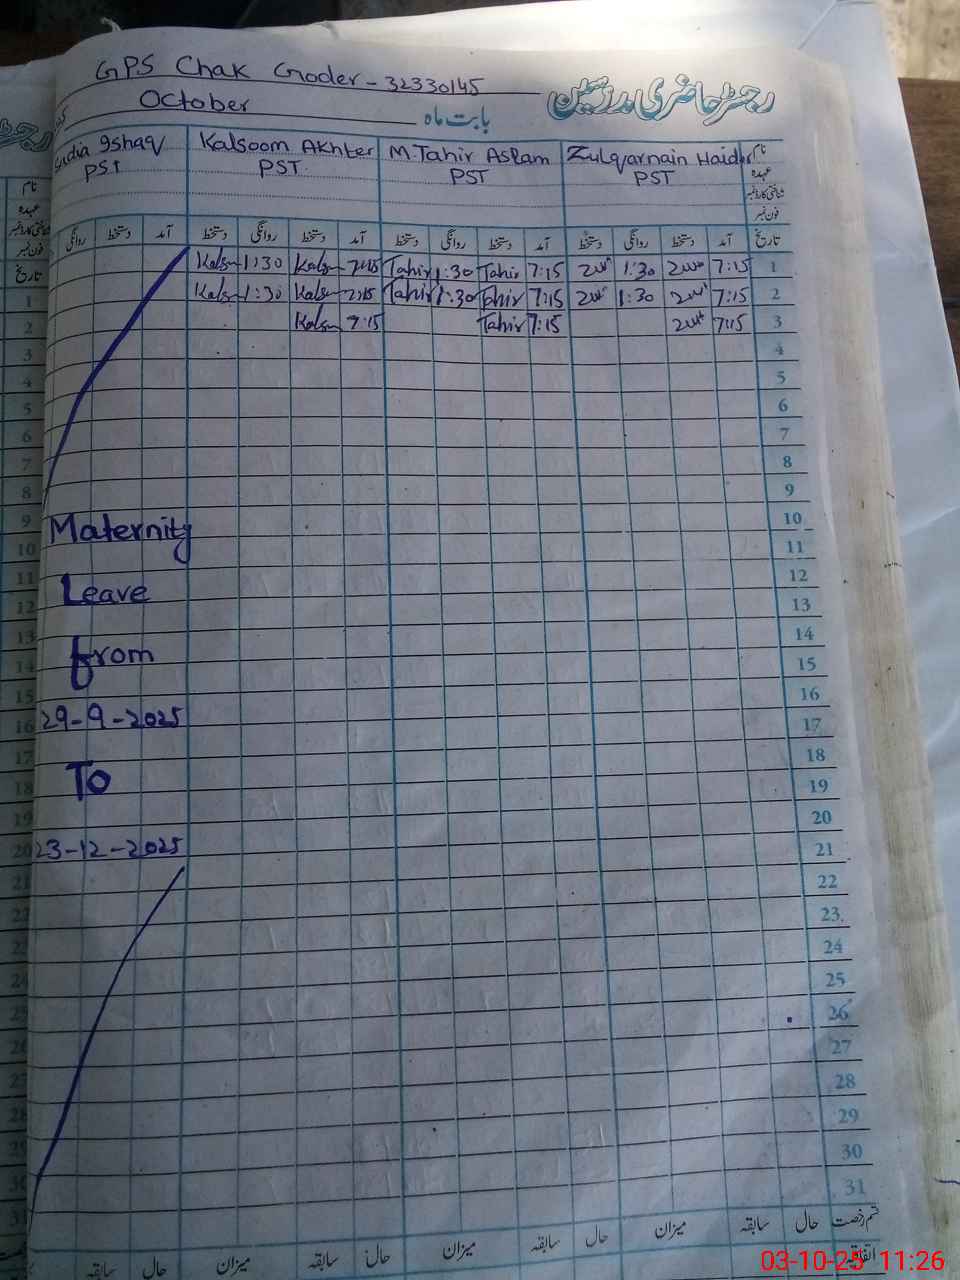 GPS Chak Goder - 32330145
رجسٹر حاضری مدرسین
October بابت ماہ
Sadia Ishaq Kalsoom Akhter M.Tahir Aslam Zulqarnain Haider نام
PST PST PST PST عہدہ
شناختی کارڈ نمبر
فون نمبر
روانگی دستخط آمد دستخط روانگی دستخط آمد دستخط روانگی دستخط آمد دستخط روانگی دستخط آمد تاریخ
1:30 7:15 Tahir 1:30 Tahir 7:15 1:30 7:15 1
1:30 7:15 Tahir 1:30 Tahir 7:15 1:30 7:15 2
7:15 Tahir 7:15 7:15 3
4
5
6
7
8
9
10
11
12
13
14
15
16
17
18
19
20
21
22
23
24
25
26
27
28
29
30
31
Maternity
Leave
from
29-9-2025
To
23-12-2025
میزان سابقہ حال میزان سابقہ حال میزان سابقہ حال قسم رخصت
سابقہ حال میزان سابقہ حال میزان سابقہ حال میزان سابقہ حال اتفاقیہ
03-10-25 11:26